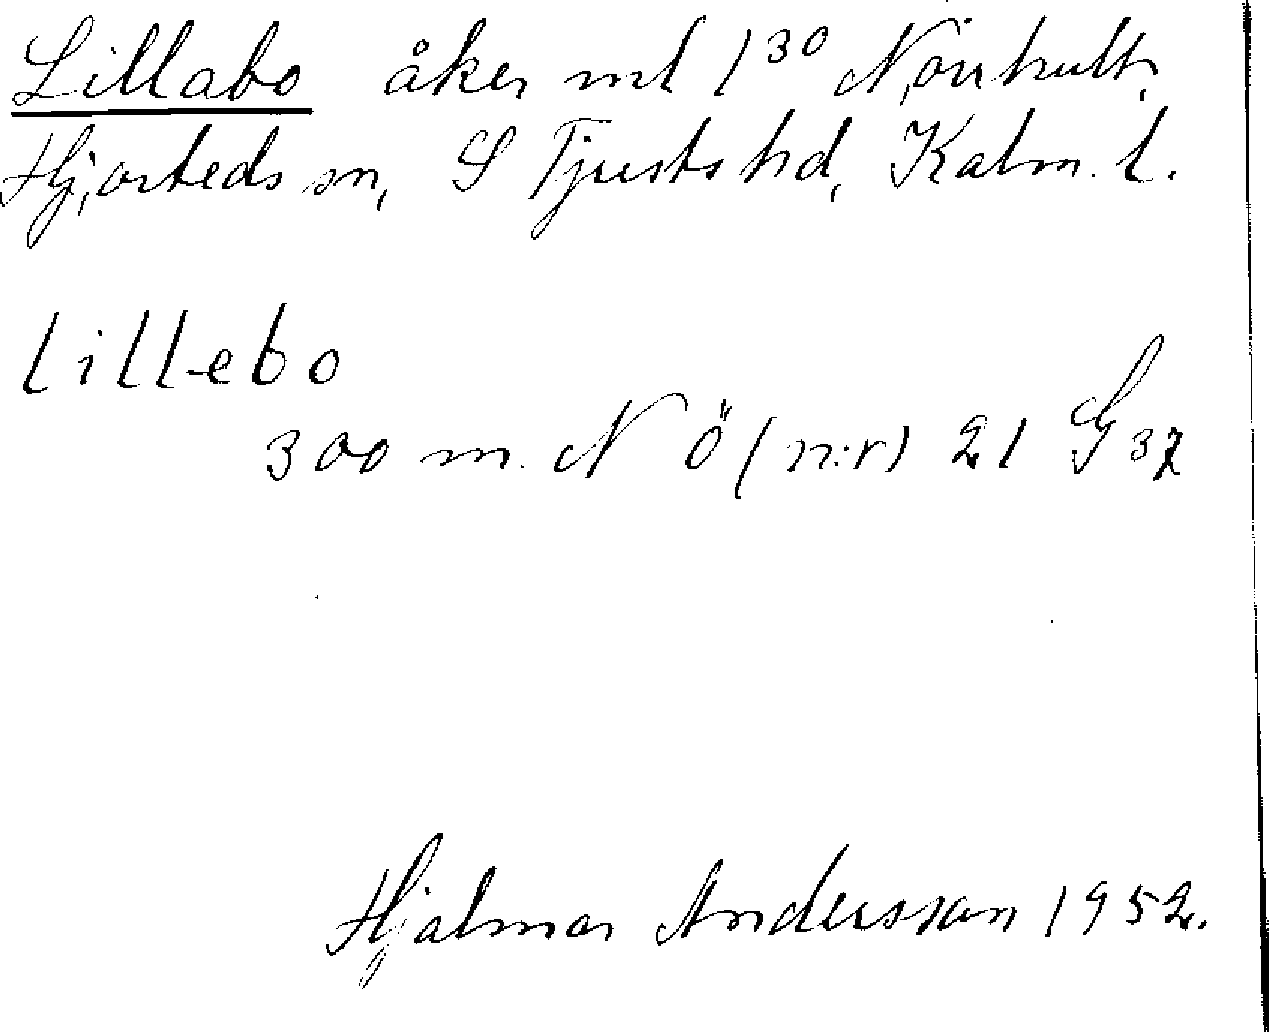 Lillabo åker ml 1³⁰ Norrhult,
Hjorteds sn, S Tjusts hd, Kalm. l.
lillebo
300 m. N Ö (n:r) 21 G 37
Hjalmar Andersson 1952.